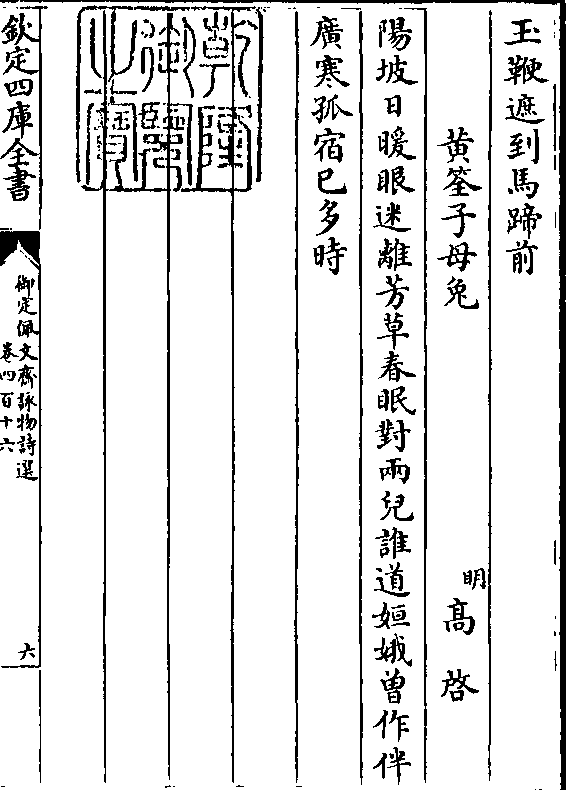 玉鞭遮到馬蹄前
黄筌子母兔
明
高啓
陽坡日暖眼迷離芳草春眠對兩兒誰道姮娥曾作伴
廣寒孤宿已多時
乾隆御覽之寶
欽定四庫全書
御定佩文齋詠物詩選
卷四百十六
六